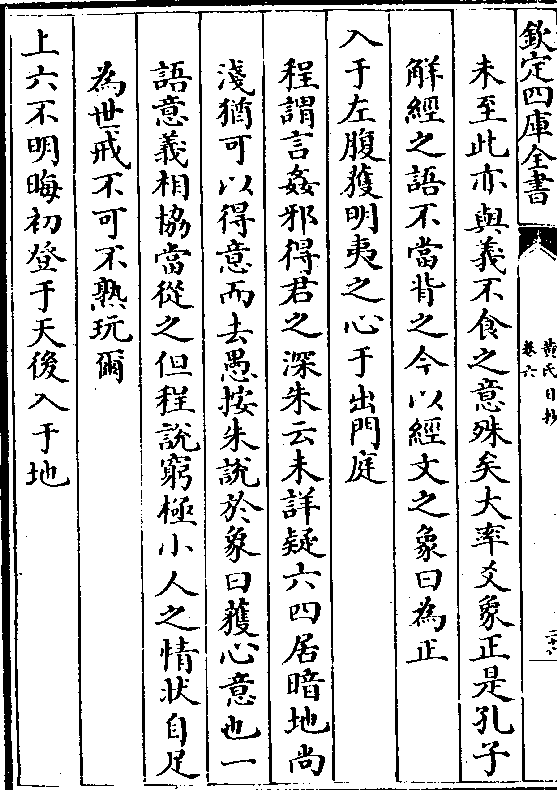 欽定四庫全書
黃氏日抄
卷六
未至此亦與義不食之意殊矣大率爻象正是孔子
解經之語不當背之今以經文之象曰為正
入于左腹獲明夷之心于出門庭
程謂言姦邪得君之深朱云未詳疑六四居暗地尚
淺猶可以得意而去愚按朱說於象曰獲心意也一
語意義相協當從之但程說窮極小人之情狀自足
為世戒不可不熟玩爾
上六不明晦初登于天後入于地